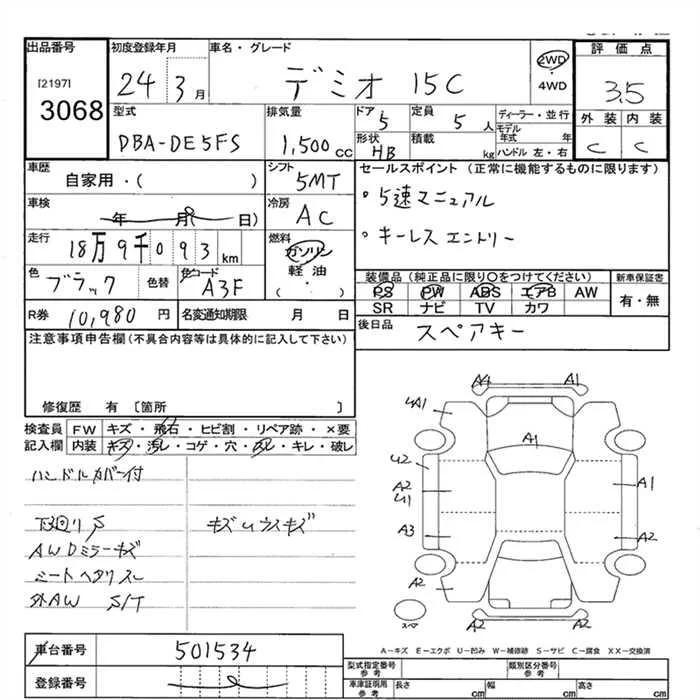 出品番号 初度登録年月 車名・グレード 評価点
[2197] 24 3月 デミオ 15C 2WD 3.5
3068 4WD
型式 排気量 ドア 定員 ディーラー・並行 外装 内装
5 5人 モデル年式 年
DBA-DE5FS 1,500cc 形状 積載 ハンドル 左・右 C C
HB kg
車歴 シフト セールスポイント(正常に機能するものに限ります)
自家用・( ) 5MT ・5速マニュアル
車検 冷房
年 月( 日) AC ・キーレスエントリー
走行 燃料
18万9千093km ガソリン
軽油
( )
色 色替 色コード 装備品(純正品に限り〇をつけてください) 新車保証書
ブラック A3F PS PW ABS エアB AW 有・無
SR ナビ TV カワ
R券 10,980円 名変通知期限 月 日 後日品 スペアキー
注意事項申告欄(不具合内容等は具体的に記入して下さい)
修復歴 有 〔箇所 〕
検査員 FW キズ・飛石・ヒビ割・リペア跡・×要
記入欄 内装 キズ・汚レ・コゲ・穴・スレ・キレ・破レ
ハンドルカバー付
下廻りS キズuウスキズ
AWDミラーキズ
シートヘタリスレ
外AW S/T
A4 A1
4A1
A1
U2
A2 A1
U1
A3 A2
A2 A2
スペア
A-キズ E-エクボ U-凹み W-補修跡 S-サビ C-腐食 XX-交換済
車台番号 501534
登録番号
型式指定番号 参考 類別区分番号 参考
車庫証明用 参考 長さ cm 幅 cm 高さ cm